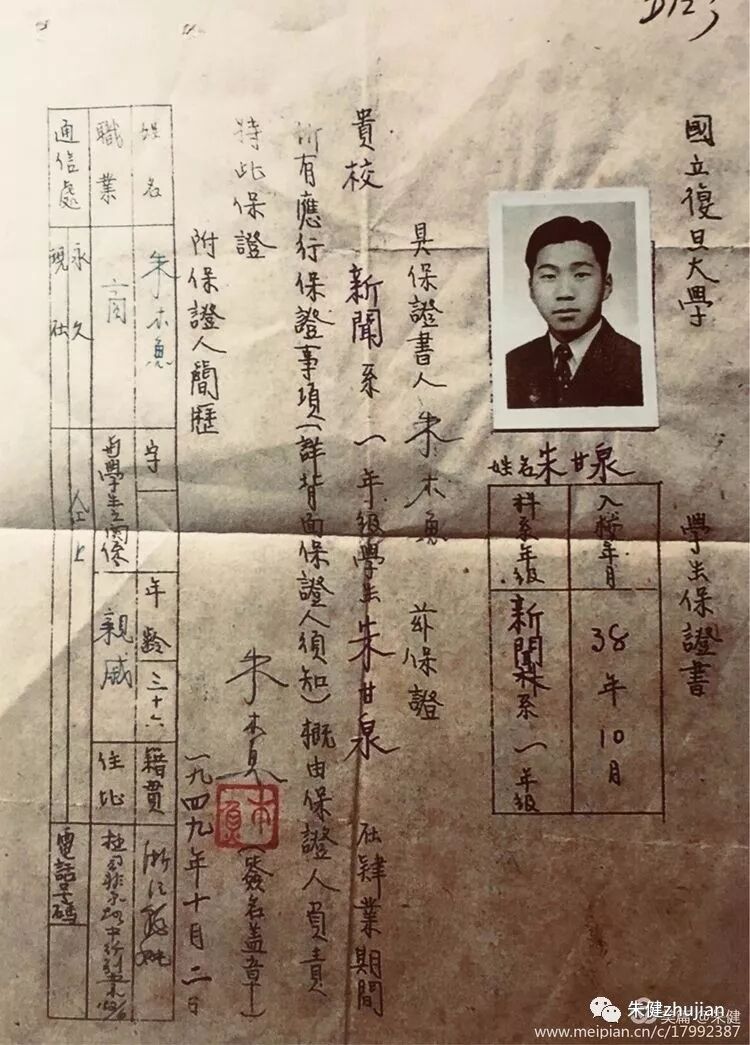 國立復旦大學 學生保證書
姓名朱甘泉
入校年月 38年10月
科系年級 新聞系一年級
具保證書人朱木魚 茲保證
貴校新聞系一年級學生朱甘泉在肄業期間
所有應行保證事項(詳背面保證人須知)概由保證人負責
特此保證
朱木魚 (簽名盖章)
一九四九年十月二日
附保證人簡歷
姓名 朱木魚 字 年齡 三十六 籍貫 浙江
職業 商 與學生之關係 親戚 住址
通信處 永久 現在 仝上 電話号碼
朱健zhujian
美篇 @朱健
www.meipian.cn/c/17992387